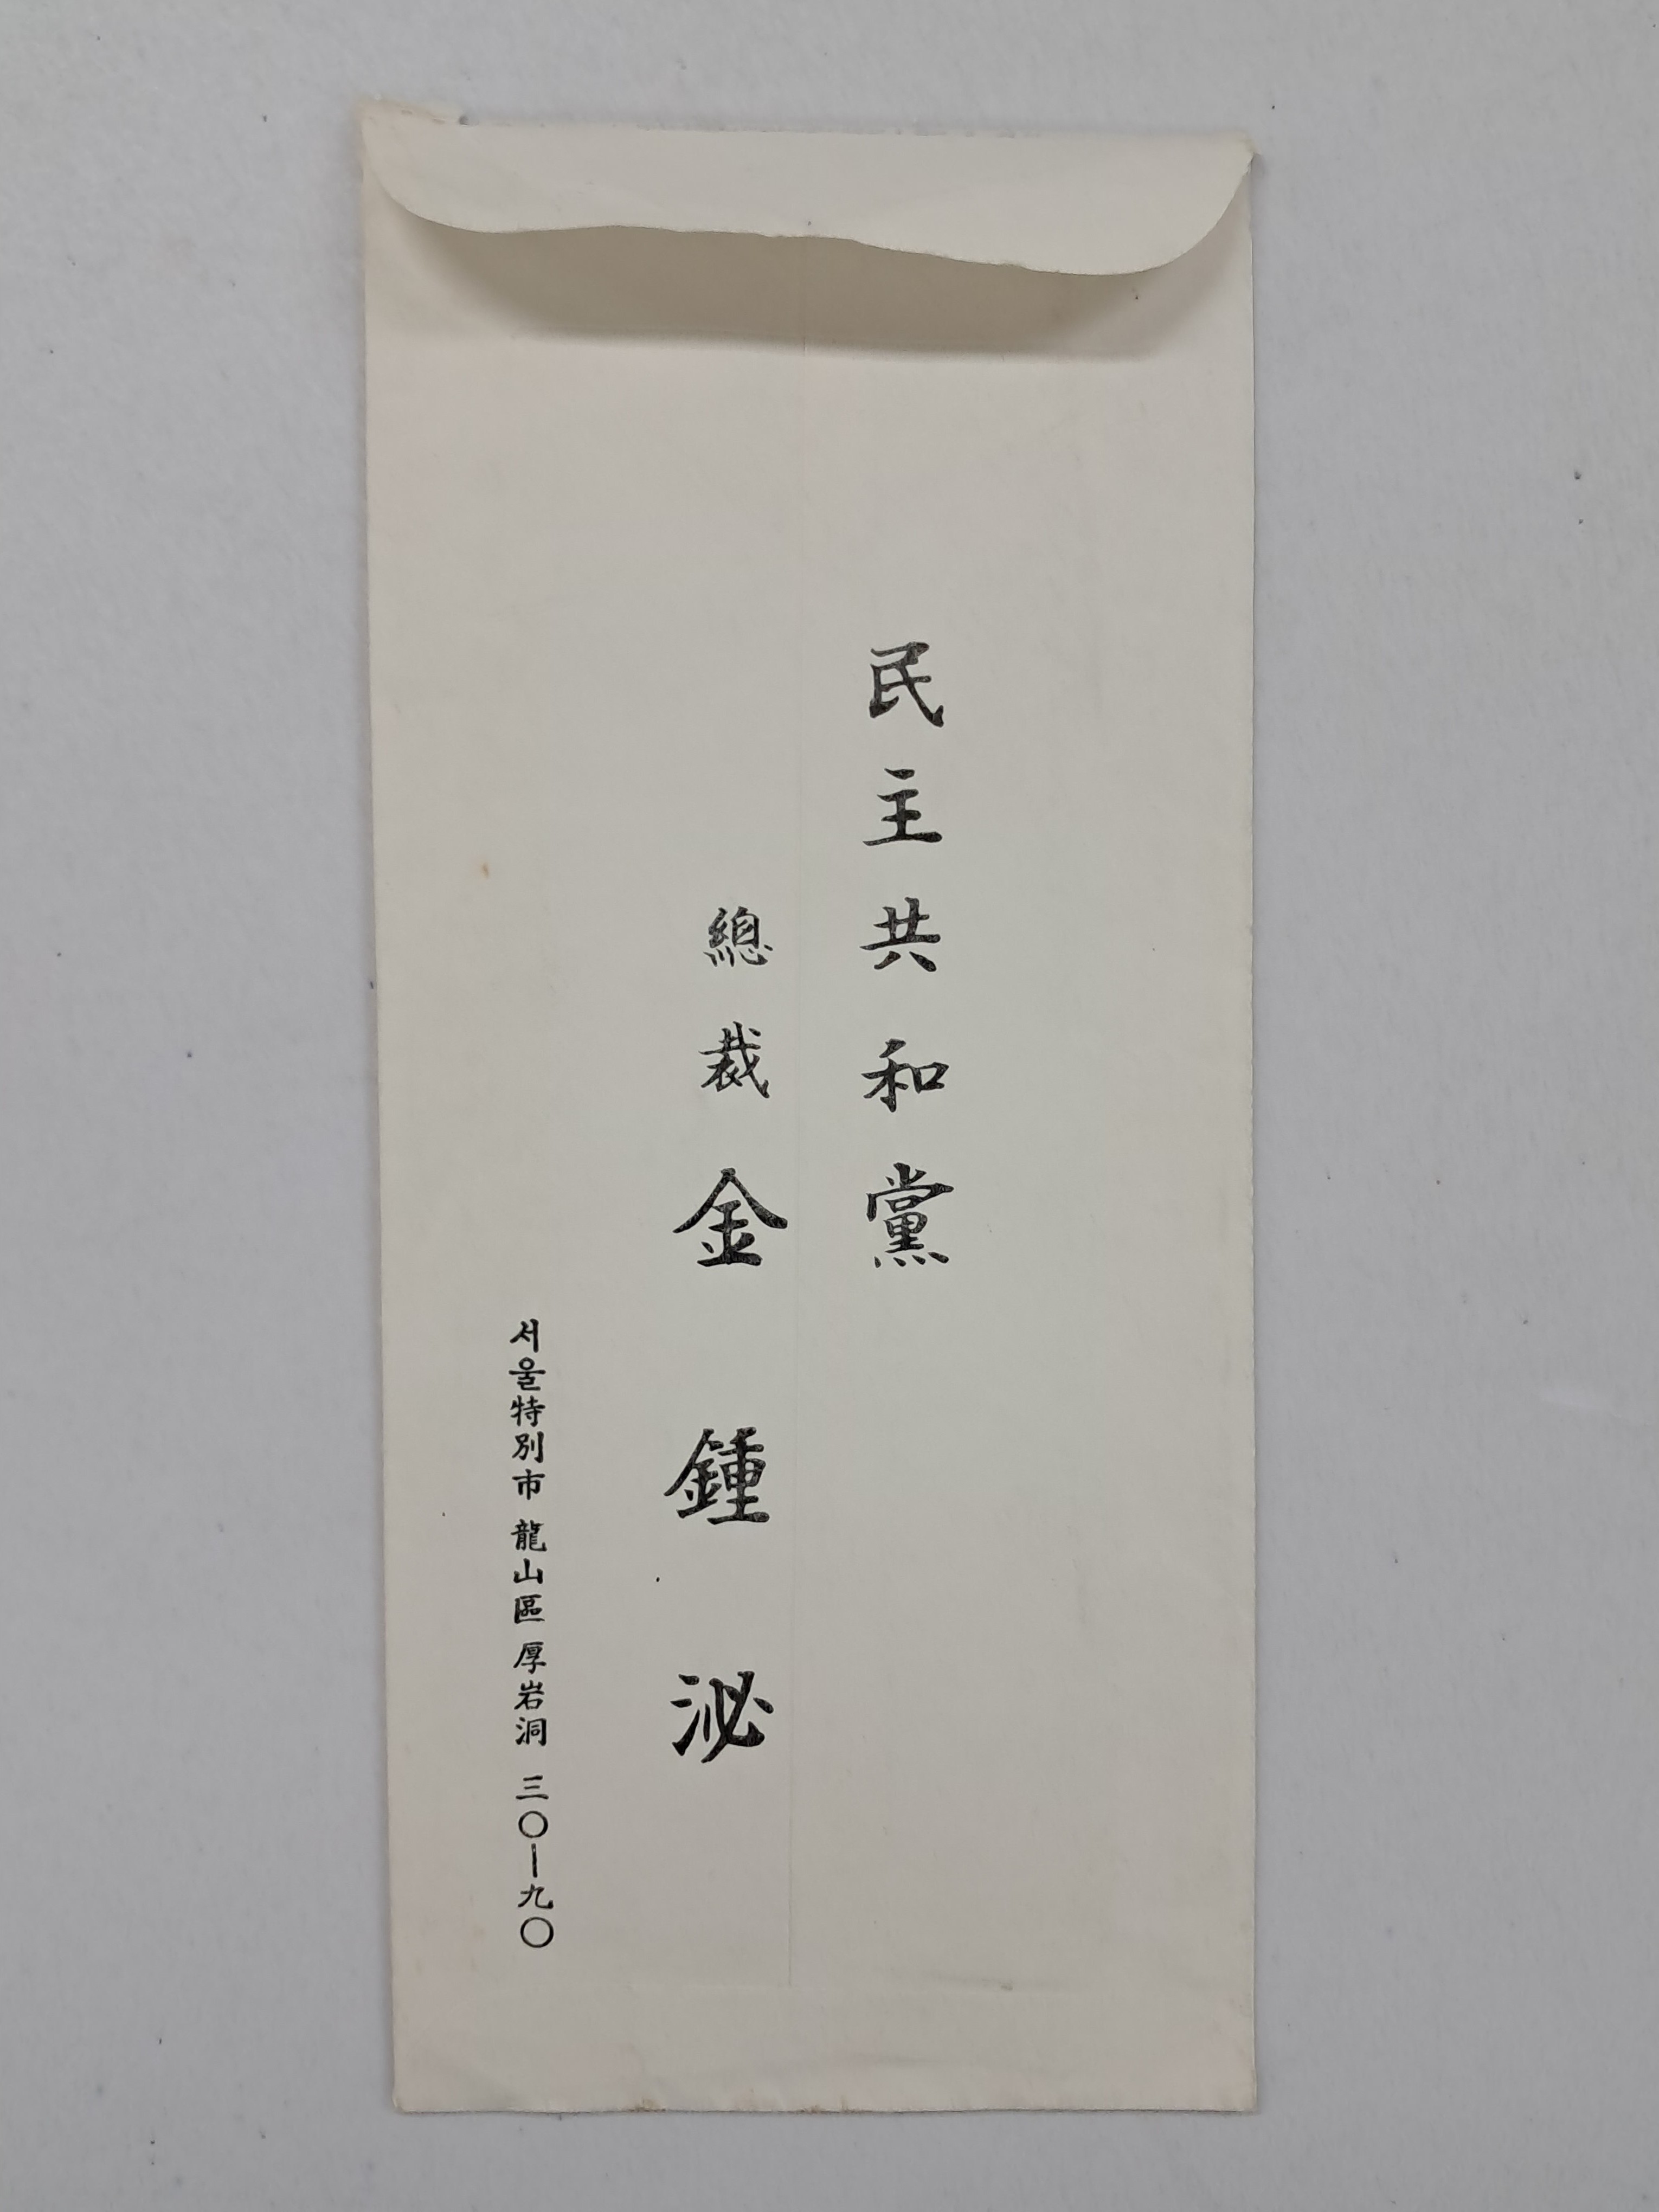 民主共和黨
總裁 金鍾泌
서울特別市 龍山區 厚岩洞 三〇ㅡ九〇